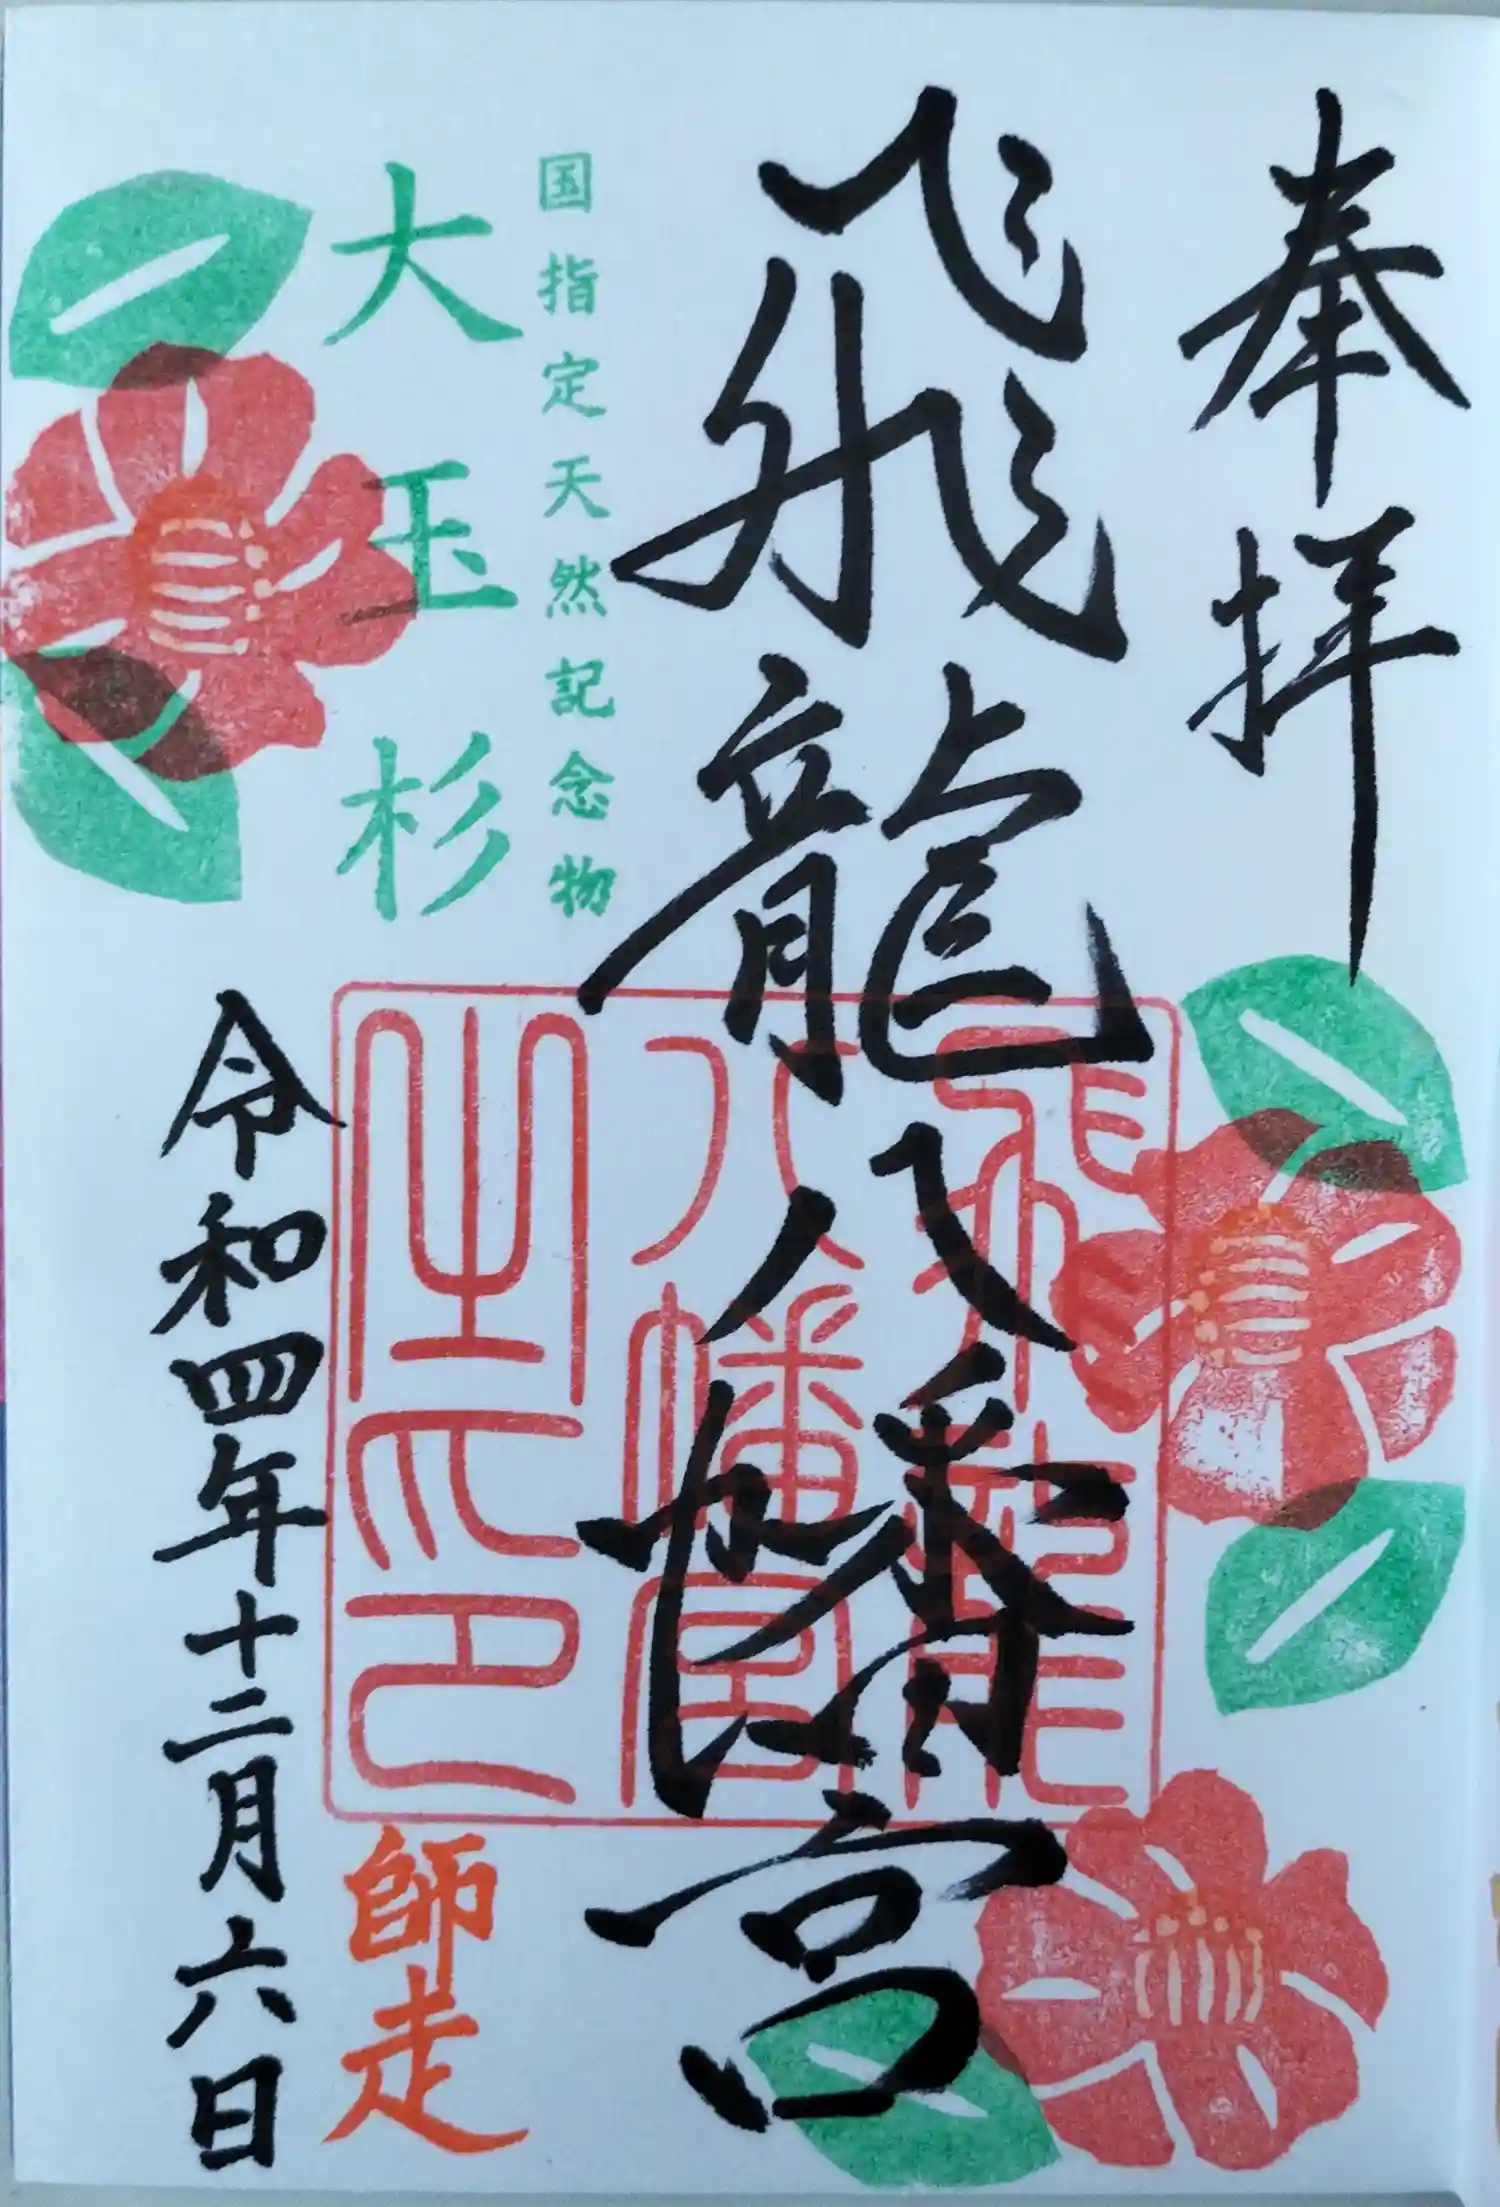 奉拝
飛龍八幡宮
飛龍
八幡宮
之印
国指定天然記念物
大玉杉
師走
令和四年十二月六日